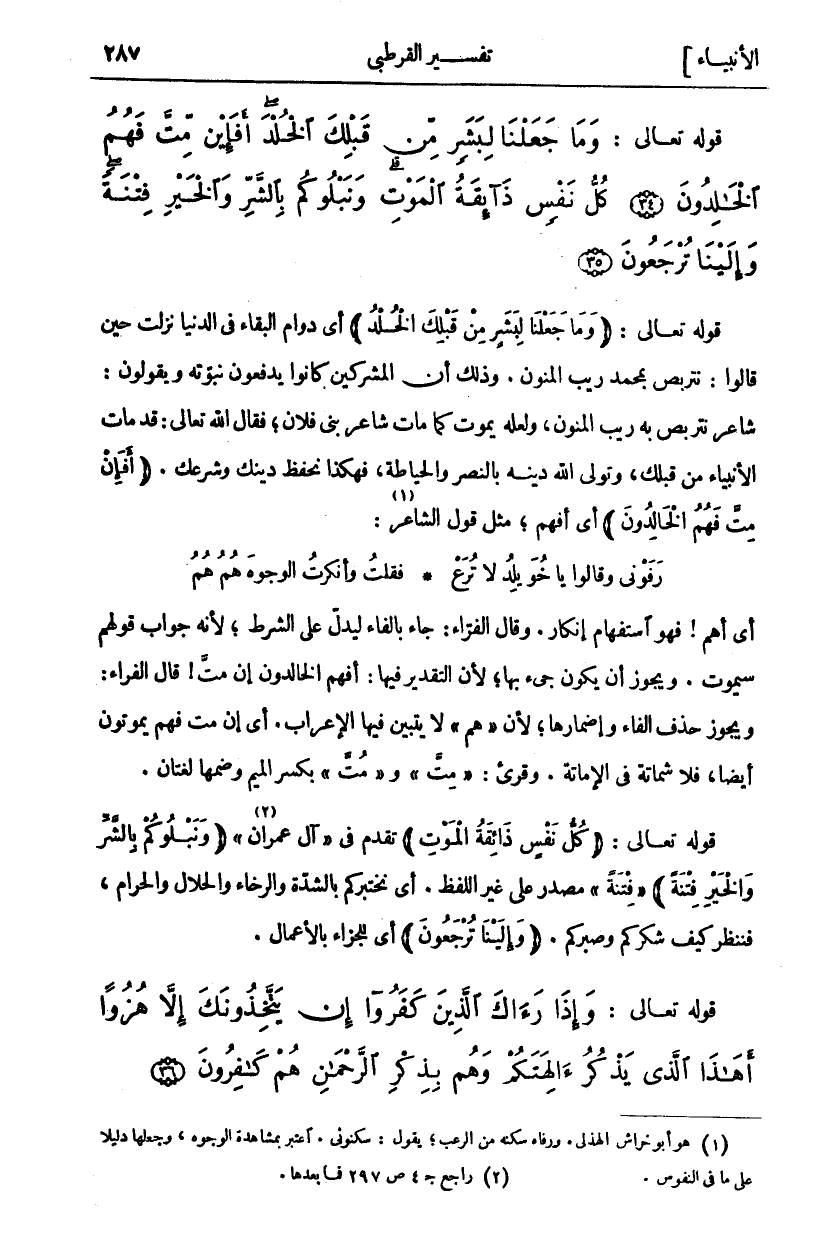 الأنبياء ] تفسير القرطبى ٢٨٧
قوله تعالى : وَمَا جَعَلْنَا لِبَشَرٍ مِّن قَبْلِكَ ٱلْخُلْدَ ۖ أَفَإِيْن مِّتَّ فَهُمُ
ٱلْخَـٰلِدُونَ ﴿٣٤﴾ كُلُّ نَفْسٍ ذَآئِقَةُ ٱلْمَوْتِ ۗ وَنَبْلُوكُم بِٱلشَّرِّ وَٱلْخَيْرِ فِتْنَةً ۖ
وَإِلَيْنَا تُرْجَعُونَ ﴿٣٥﴾
قوله تعالى : ﴿ وَمَا جَعَلْنَا لِبَشَرٍ مِنْ قَبْلِكَ الْخُلْدَ ﴾ أى دوام البقاء فى الدنيا نزلت حين
قالوا : نتربص بمحمد ريب المنون . وذلك أن المشركين كانوا يدفعون نبوّته ويقولون :
شاعر نتربص به ريب المنون، ولعله يموت كما مات شاعر بنى فلان؛ فقال الله تعالى: قد مات
الأنبياء من قبلك، وتولى الله دينه بالنصر والحياطة، فهكذا نحفظ دينك وشرعك . ﴿ أَفَإِنْ
مِتَّ فَهُمُ الْخَالِدُونَ ﴾ أى أفهم ؛ مثل قول الشاعر (١) :
رَفَوْنى وقالوا يا خُوَيلِدُ لا تُرَعْ * فقلتُ وأنكرتُ الوجوهَ هُمُ هُمُ
أى أهم ! فهو آستفهام إنكار . وقال الفرّاء: جاء بالفاء ليدلّ على الشرط ؛ لأنه جواب قولهم
سيموت . ويجوز أن يكون جىء بها؛ لأن التقدير فيها : أفهم الخالدون إن متَّ! قال الفراء:
ويجوز حذف الفاء وإضمارها؛ لأن « هم » لا يتبين فيها الإعراب. أى إن مت فهم يموتون
أيضا، فلا شماتة فى الإماتة . وقرئ : « مِتَّ » و « مُتَّ » بكسر الميم وضمها لغتان .
قوله تعالى : ﴿ كُلُّ نَفْسٍ ذَائِقَةُ الْمَوْتِ ﴾ تقدم فى « آل عمران (٢) » ﴿ وَنَبْلُوكُمْ بِالشَّرِّ
وَالْخَيْرِ فِتْنَةً ﴾ « فِتْنَةً » مصدر على غير اللفظ . أى نختبركم بالشدّة والرخاء والحلال والحرام ،
فننظر كيف شكركم وصبركم . ﴿ وَإِلَيْنَا تُرْجَعُونَ ﴾ أى للجزاء بالأعمال .
قوله تعالى : وَإِذَا رَءَاكَ ٱلَّذِينَ كَفَرُوٓا إِن يَتَّخِذُونَكَ إِلَّا هُزُوًا
أَهَـٰذَا ٱلَّذِى يَذْكُرُ ءَالِهَتَكُمْ وَهُم بِذِكْرِ ٱلرَّحْمَـٰنِ هُمْ كَـٰفِرُونَ ﴿٣٦﴾
(١) هو أبو خراش الهذلى. ورفاه سكنه من الرعب؛ يقول : سكنونى . آعتبر بمشاهدة الوجوه ، وجعلها دليلا
على ما فى النفوس . (٢) راجع جـ ٤ ص ٢٩٧ فما بعدها .